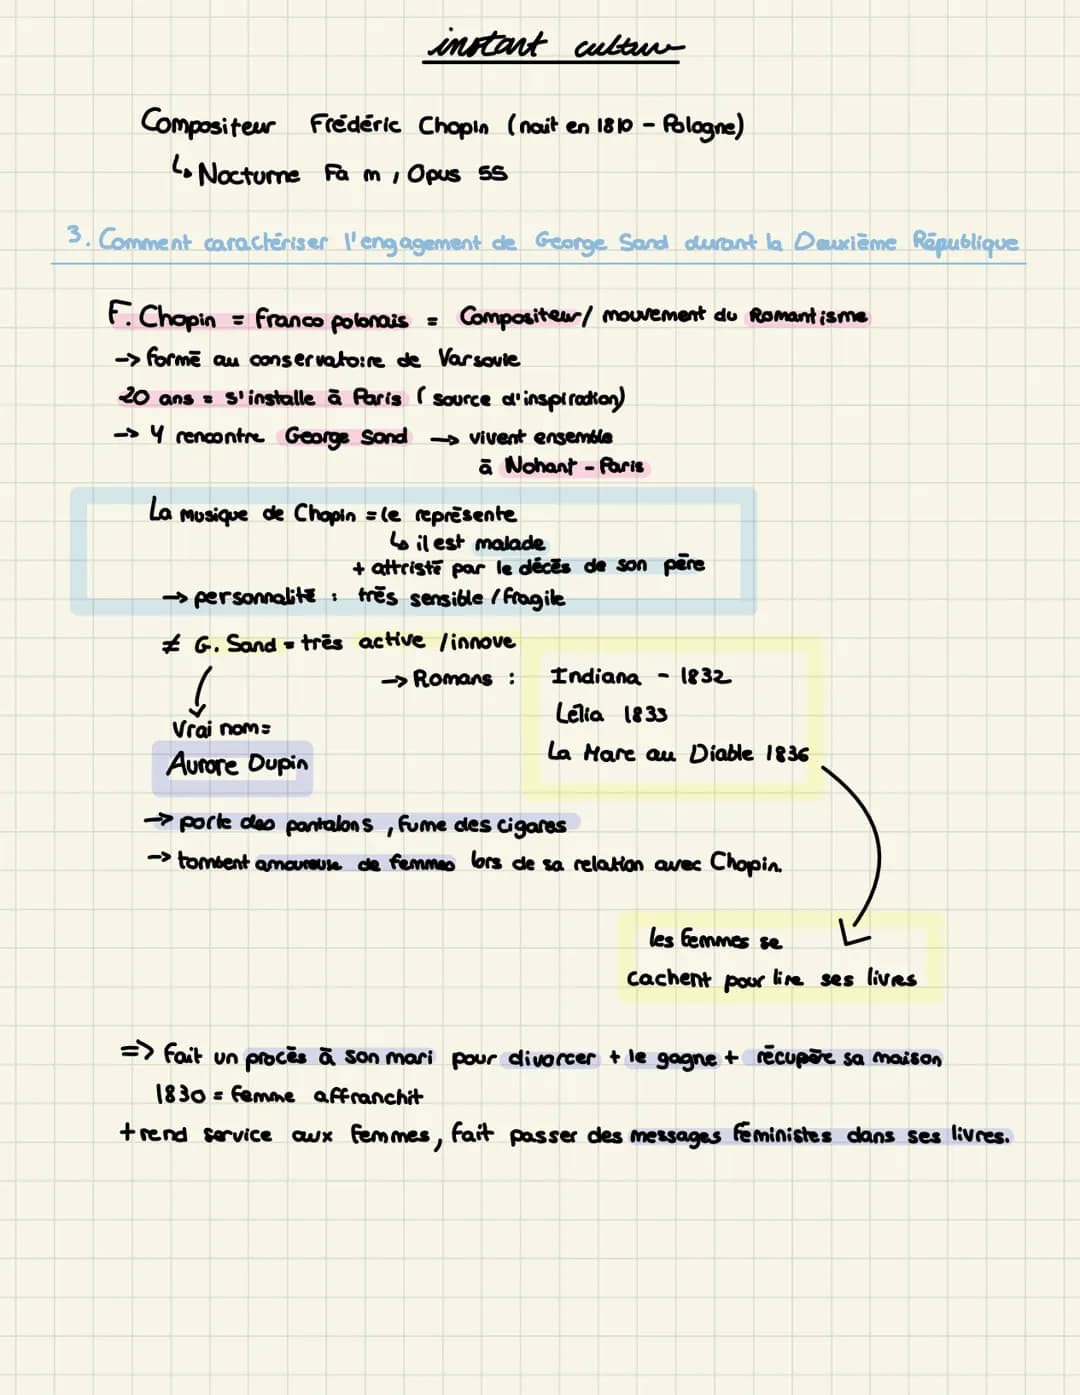 instant culture
Compositeur Frédéric Chopin (nait en 1810 - Pologne)
↳ Nocturne Fa m, Opus 55
3. Comment caractériser l'engagement de George Sand durant la Deuxième République
F. Chopin = franco polonais = Compositeur / mouvement du Romantisme
-> formé au conservatoire de Varsovie
20 ans = s'installe à Paris (source d'inspiration)
-> Y rencontre George Sand -> vivent ensemble
à Nohant - Paris
La musique de Chopin = le représente
↳ il est malade
+ attristé par le décès de son père
-> personnalité : très sensible / fragile
≠ G. Sand = très active / innove
-> Romans : Indiana - 1832
Lélia 1833
La Mare au Diable 1836
Vrai nom =
Aurore Dupin
-> porte des pantalons, fume des cigares
-> tombent amoureuse de femmes lors de sa relation avec Chopin.
les femmes se
cachent pour lire ses livres
=> fait un procès à son mari pour divorcer + le gagne + récupère sa maison
1830 = femme affranchit
+ rend service aux femmes, fait passer des messages féministes dans ses livres.